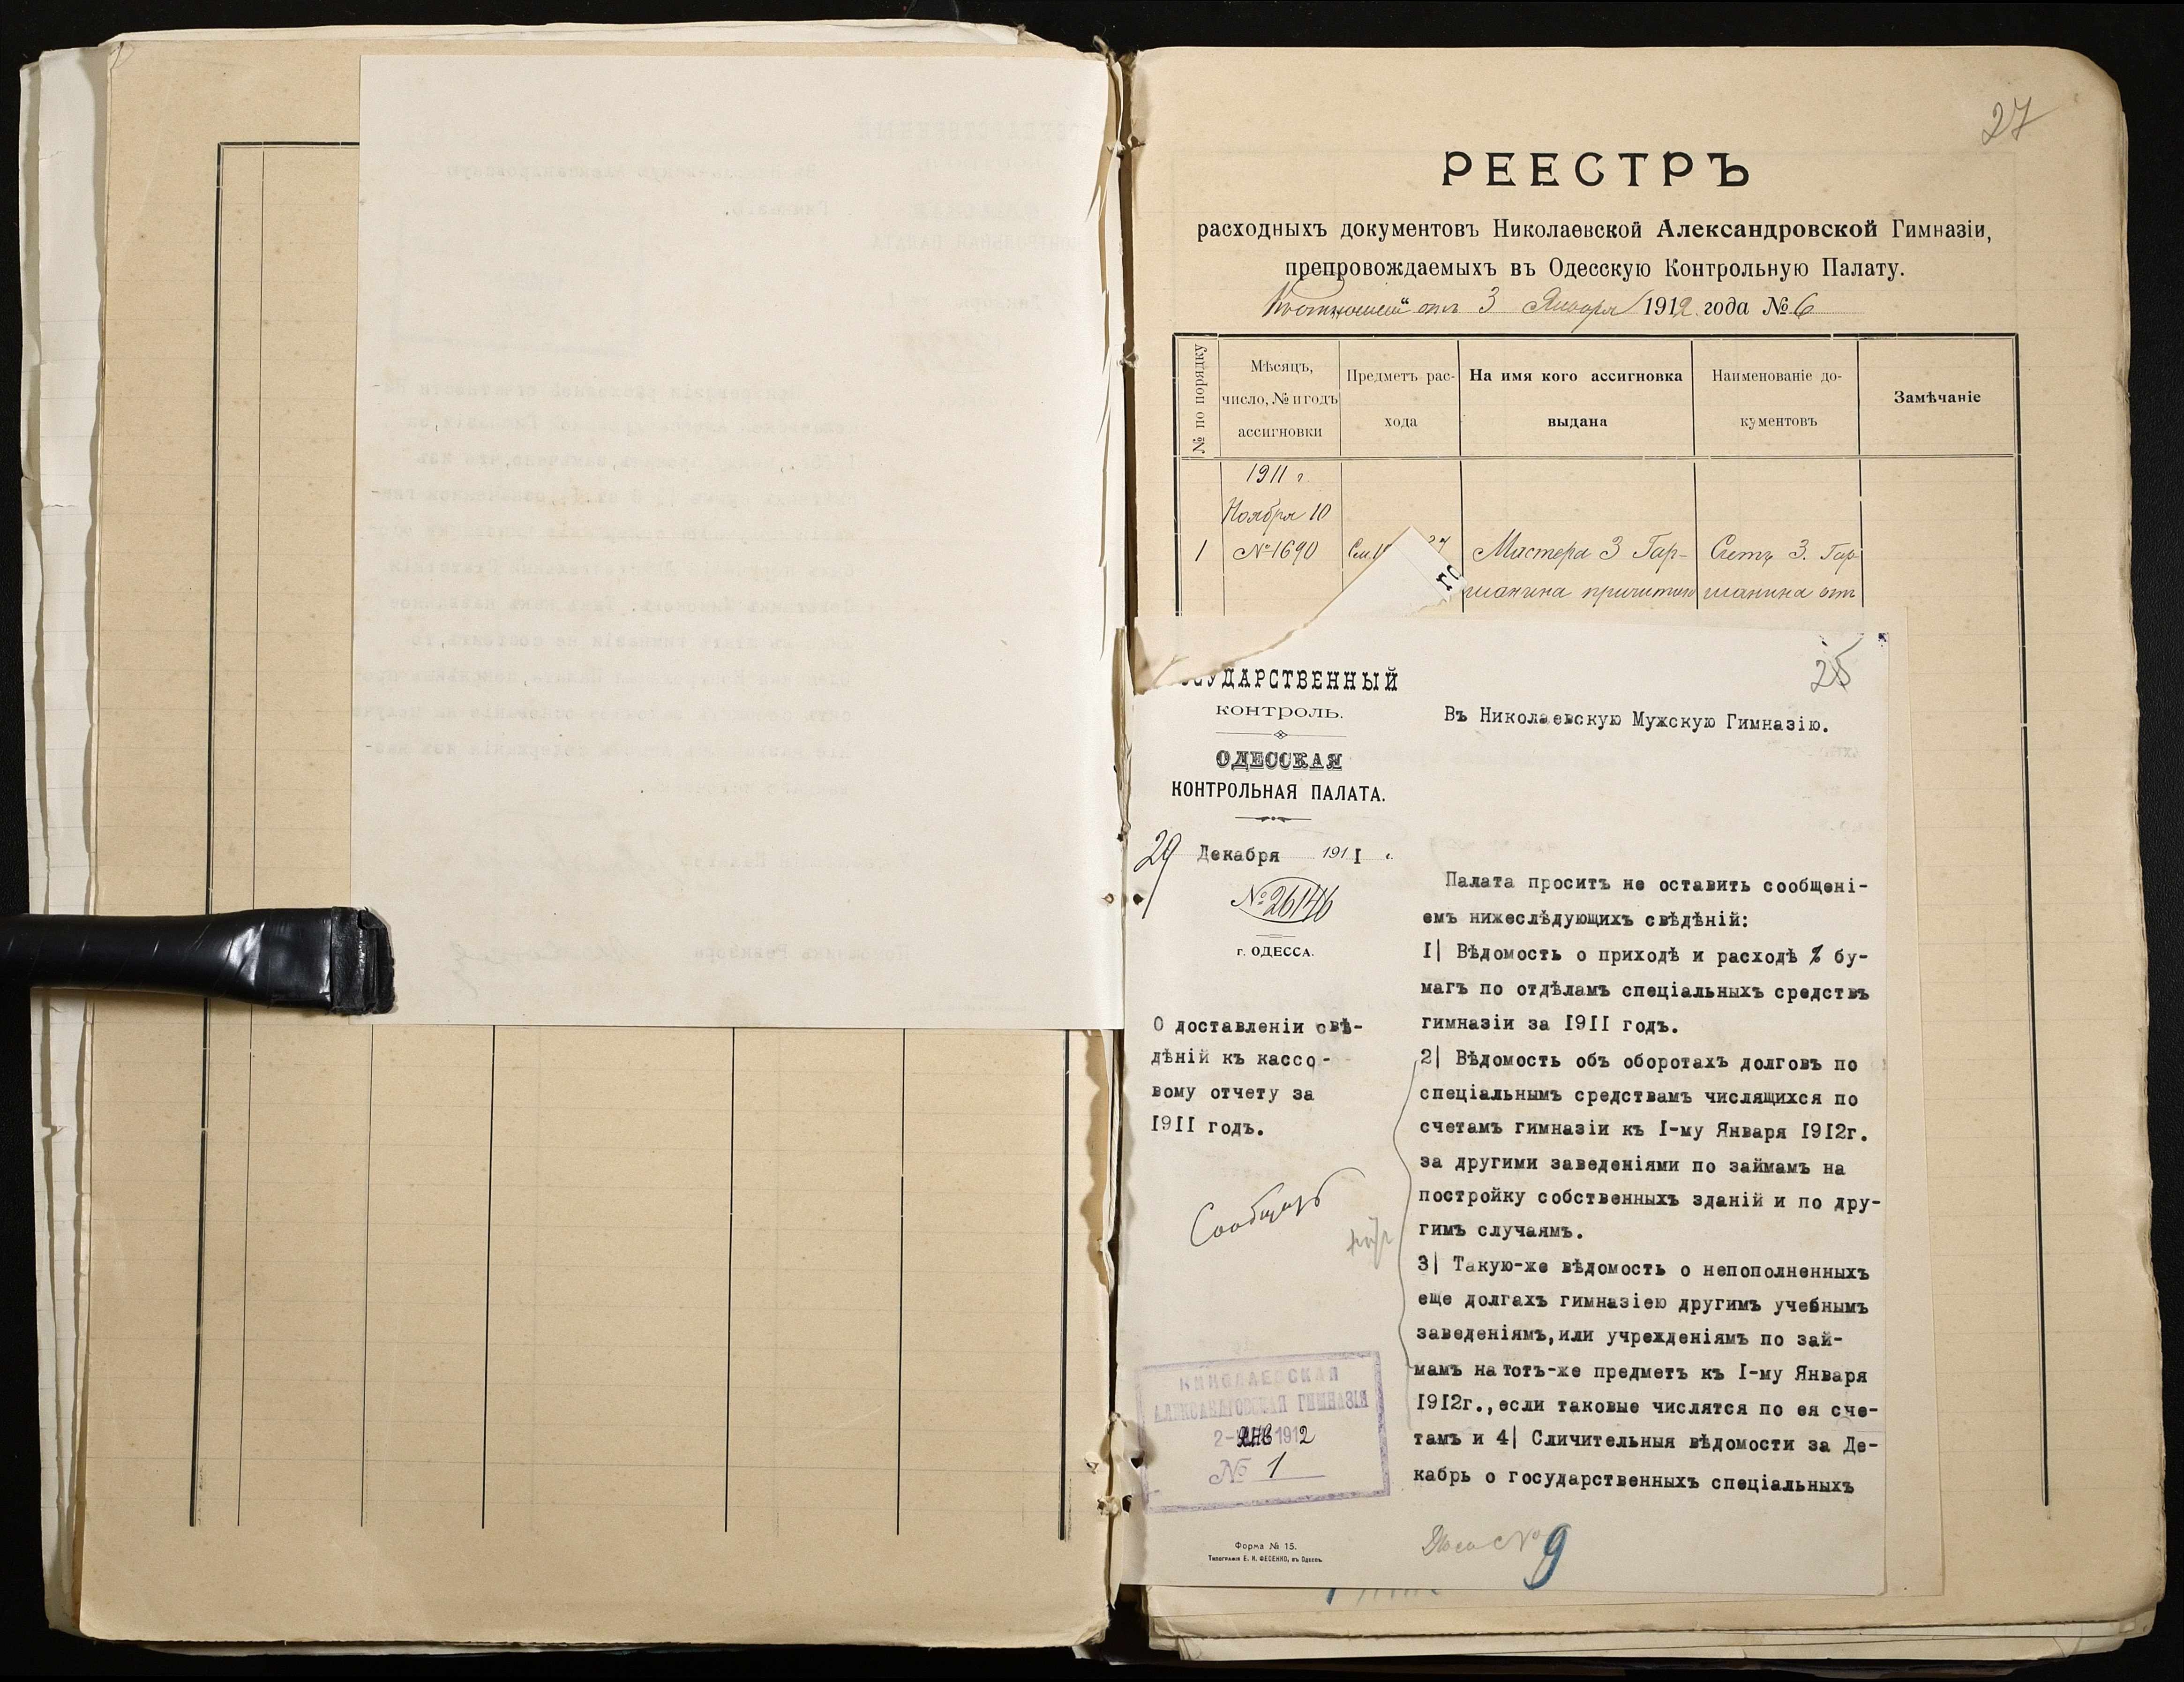 27
РЕЕСТРЪ
расходныхъ документовъ Николаевской Александровской Гимназіи,
препровождаемыхъ въ Одесскую Контрольную Палату.
отъ 3 Января 1912 года № 6
№ по порядку
Мѣсяцъ,
число, № и годъ
ассигновки
Предметъ рас-
хода
На имя кого ассигновка
выдана
Наименованіе до-
кументовъ
Замѣчаніе
1911 г
Ноября 10
1 № 1690 Мастера З Гар- Счетъ З. Гар
шанина шанина отъ
25
СУДАРСТВЕННЫЙ
КОНТРОЛЬ.
ОДЕССКАЯ
КОНТРОЛЬНАЯ ПАЛАТА.
29 Декабря 191I
№ 26146
г. ОДЕССА.
О доставленіи свѣ-
дѣній къ кассо-
вому отчету за
I9II годъ.
Сообщить
НИКОЛАЕВСКАЯ
АЛЕКСАНДРОВСКАЯ ГИМНАЗІЯ
2- ЯНВ 1912
№ 1
Форма № 15.
Типографія Е. И. ФЕСЕНКО, въ Одессѣ.
Въ Николаевскую Мужскую Гимназію.
Палата проситъ не оставить сообщені-
емъ нижеслѣдующихъ свѣдѣній:
I| Вѣдомость о приходѣ и расходѣ % бу-
магъ по отдѣламъ спеціальныхъ средствъ
гимназіи за I9II годъ.
2| Вѣдомость объ оборотахъ долговъ по
спеціальнымъ средствамъ числящихся по
счетамъ гимназіи къ I-му Января I9I2г.
за другими заведеніями по займамъ на
постройку собственныхъ зданій и по дру-
гимъ случаямъ.
3| Такую-же вѣдомость о непополненныхъ
еще долгахъ гимназіею другимъ учебнымъ
заведеніямъ, или учрежденіямъ по зай-
мамъ на тотъ-же предметъ къ I-му Января
I9I2г., если таковые числятся по ея сче-
тамъ и 4| Сличительныя вѣдомости за Де-
кабрь о государственныхъ спеціальныхъ
9